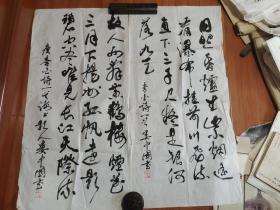 日照香爐生紫烟遥
看瀑布挂前川飛流
直下三千尺疑是銀河
落九天 李白诗 中國書
故人西辞黄鶴楼煙花
三月下揚州孤帆遠影
碧空尽唯見長江天際流
唐李白诗一首 中國書